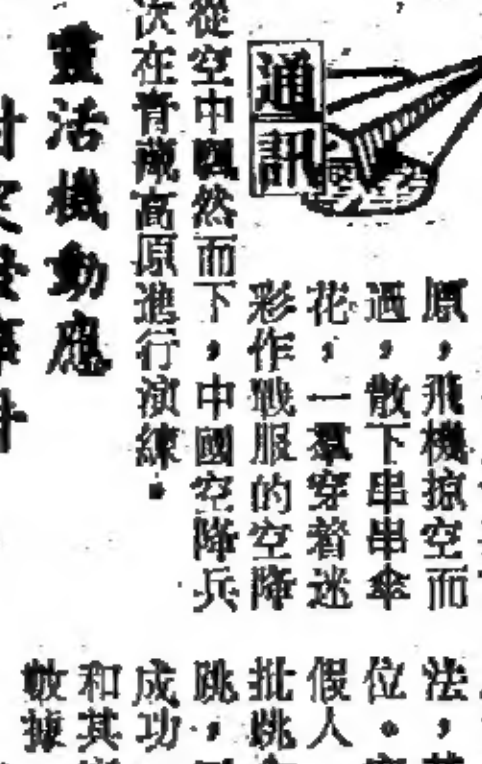 通訊
原,飛機掠空而
過,散下串串傘
花,一羣穿着迷
彩作戰服的空降
從空中飄然而下,中國空降兵
次在青藏高原進行演練。
靈活機動應
法,
位。
假人
批跳
跳,
成功
和其
數據